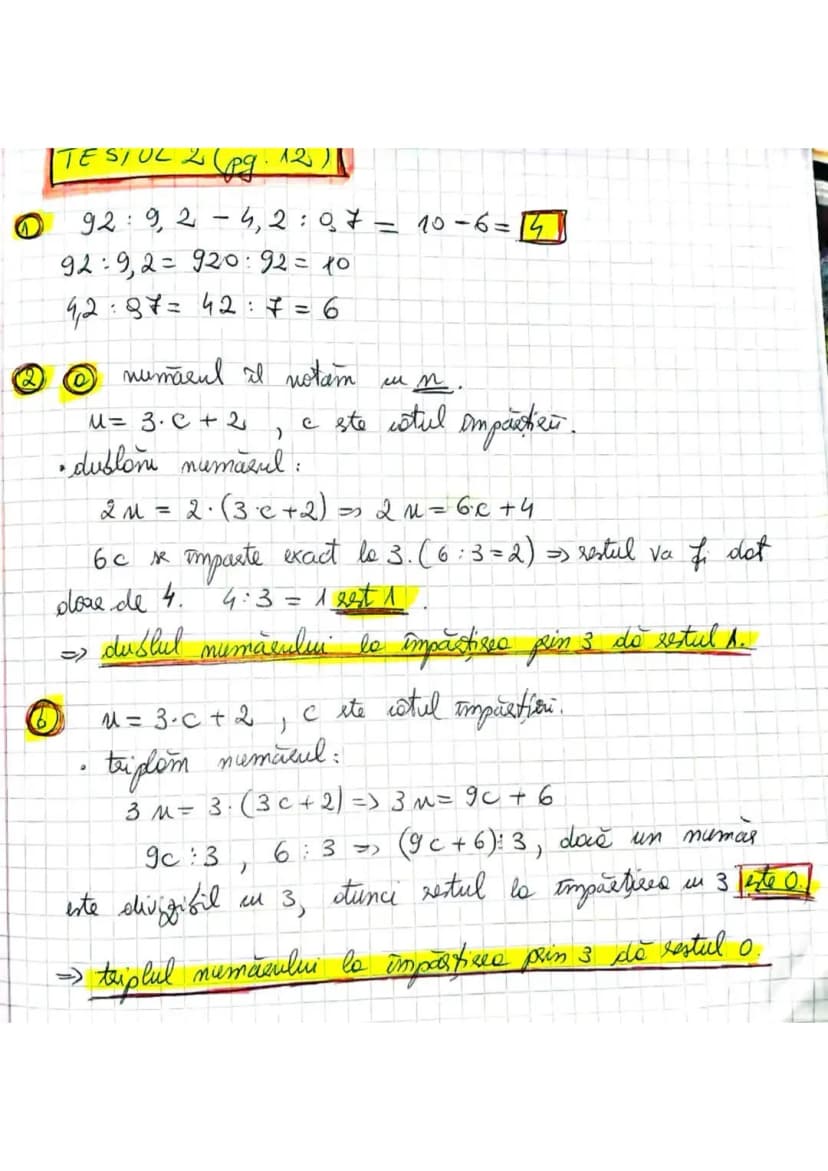 TESTUL 2 (pg. 12)
① 92 : 9,2 - 4,2 : 0,7 = 10 - 6 = 4
92 : 9,2 = 920 : 92 = 10
4,2 : 0,7 = 42 : 7 = 6
② ⓐ numărul îl notăm cu n.
n = 3·c + 2, c este câtul împărțirii.
• dublăm numărul:
2n = 2·(3·c + 2) => 2n = 6·c + 4
6c se împarte exact la 3. (6 : 3 = 2) => restul va fi dat
doar de 4. 4 : 3 = 1 rest 1.
=> dublul numărului la împărțirea prin 3 dă restul 1.
ⓑ n = 3·c + 2, c este câtul împărțirii.
• triplăm numărul:
3n = 3·(3c + 2) => 3n = 9c + 6
9c ⋮ 3, 6 ⋮ 3 => (9c + 6) ⋮ 3, dacă un număr
este divizibil cu 3, atunci restul la împărțirea cu 3 este 0.
=> triplul numărului la împărțirea prin 3 dă restul 0.